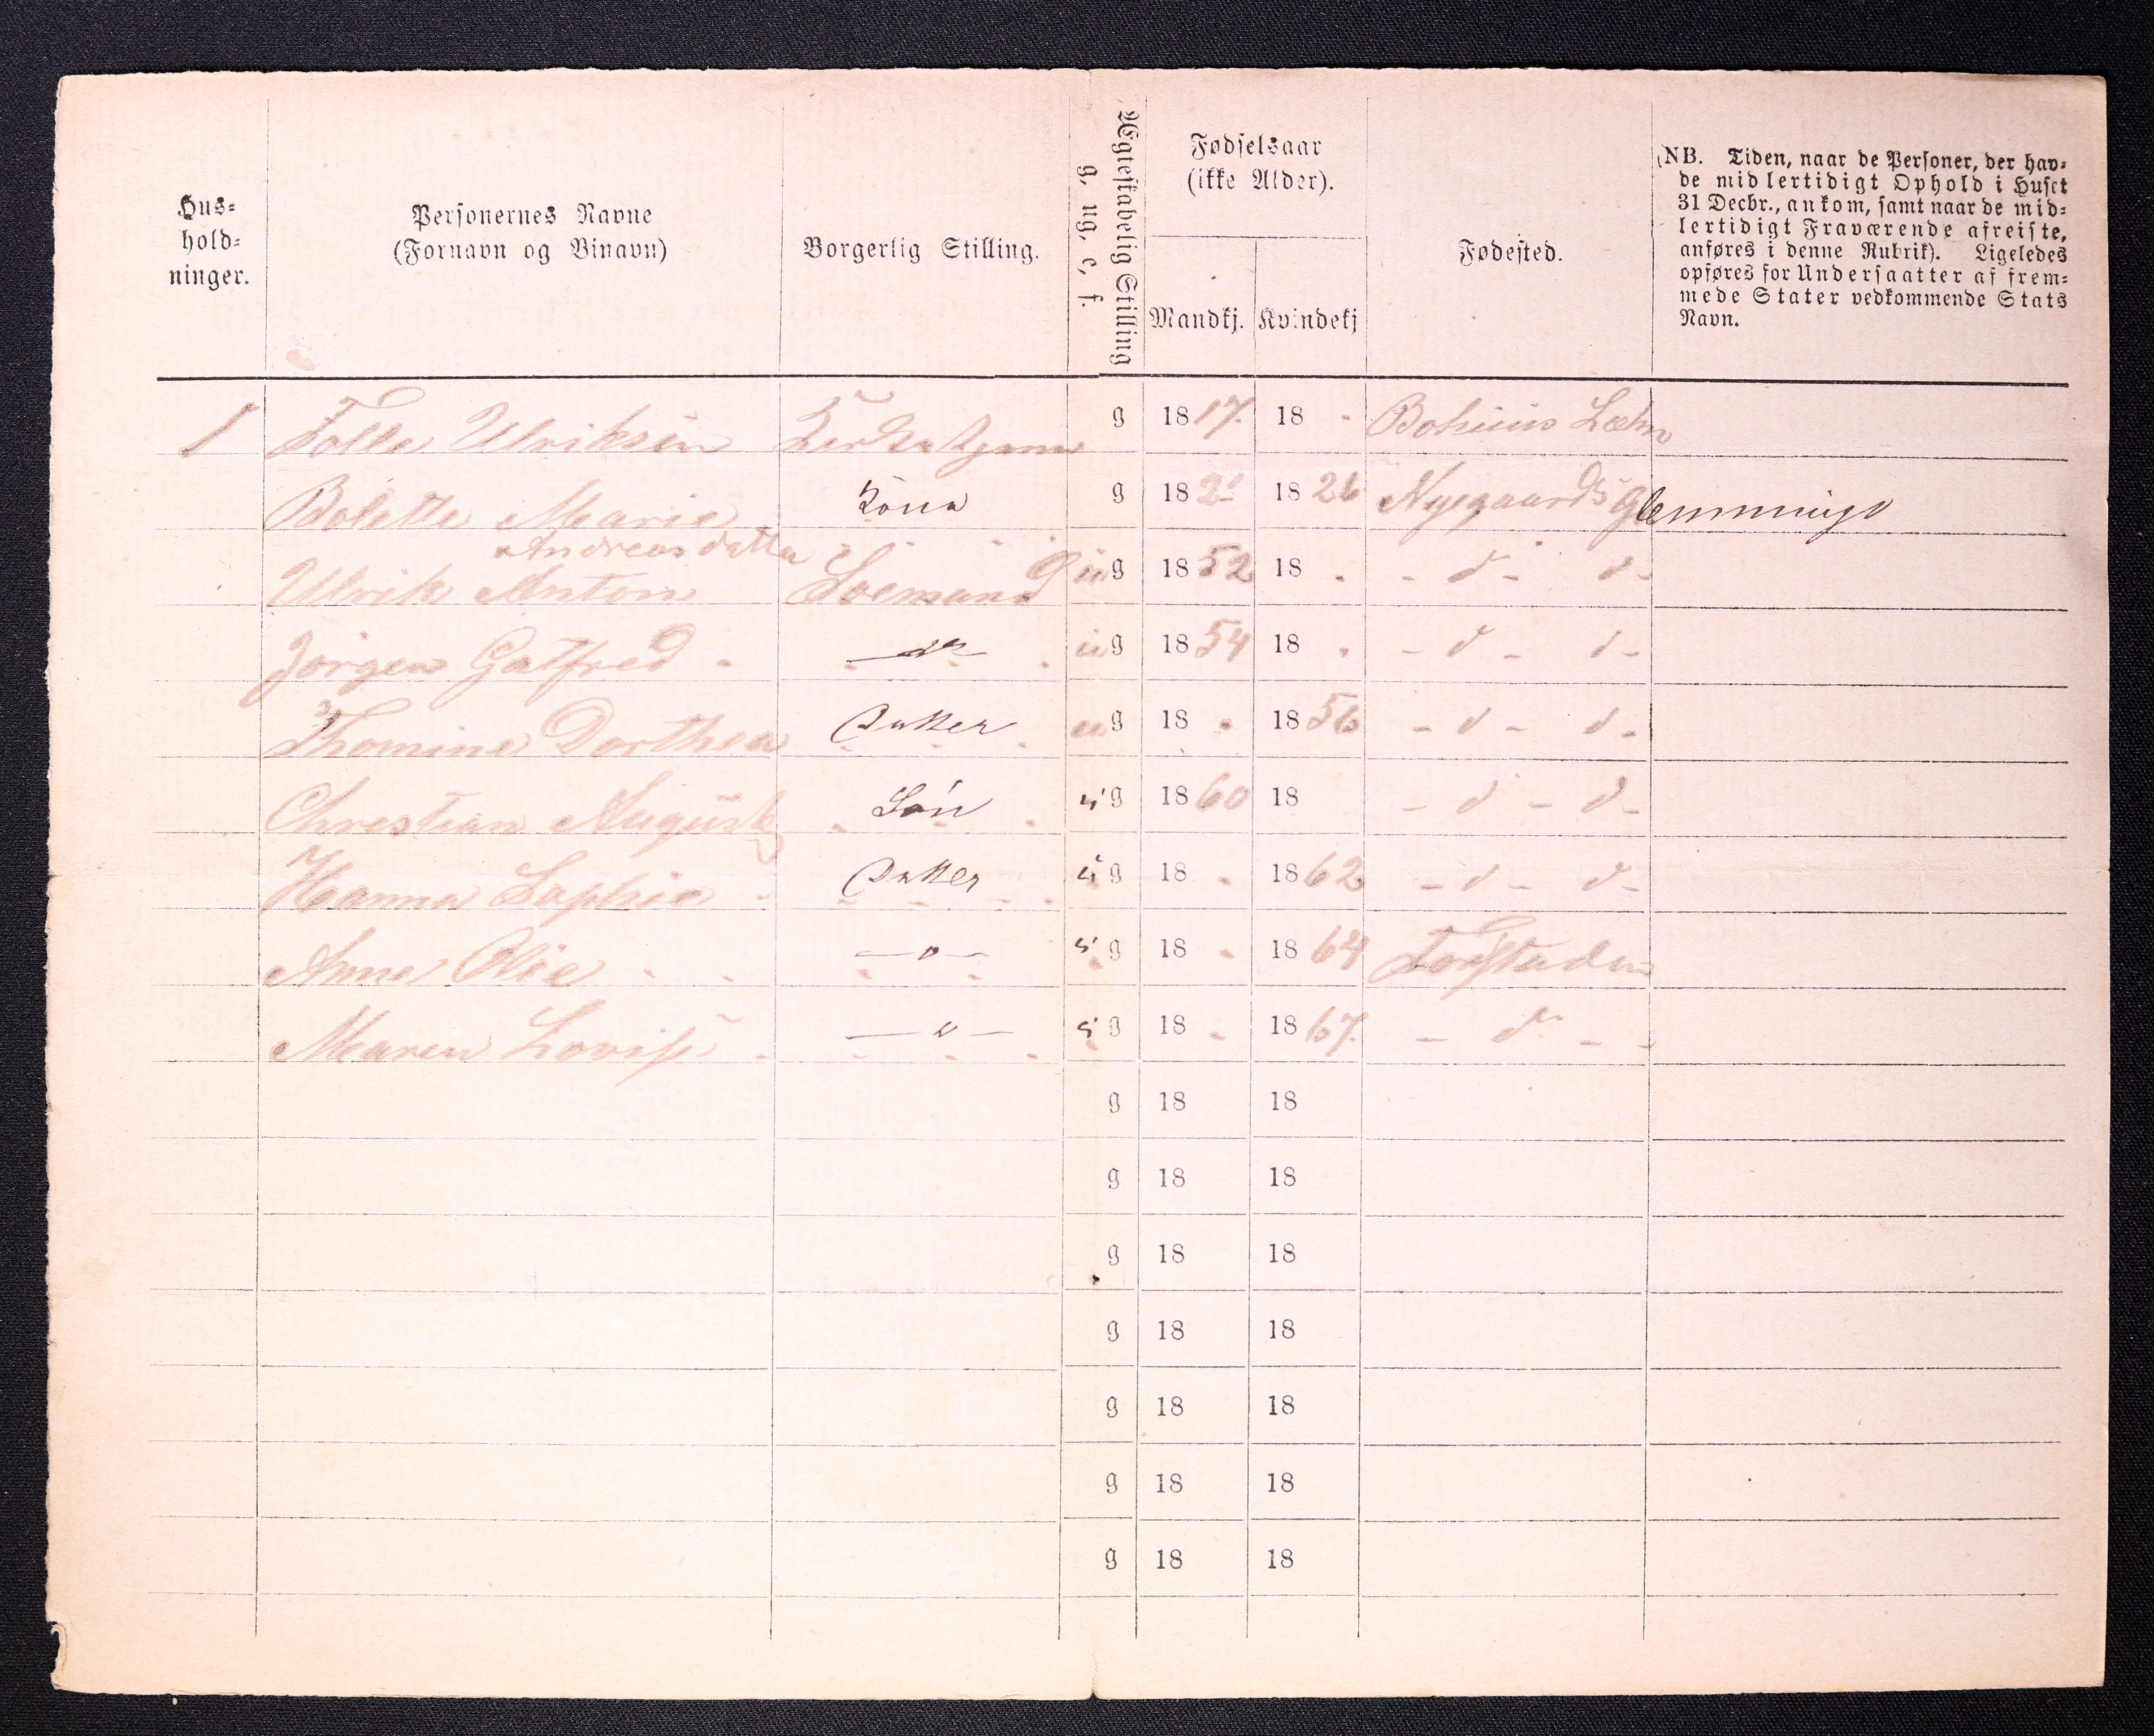 Hus=
hold=
ninger.
Personernes Navne
(Fornavn og Binavn)
Borgerlig Stilling.
Ægteskabelig Stilling
g, ug, e, f.
Fødselsaar
(ikke Alder).
Mandkj. Kvindekj
Fødested.
(NB. Tiden, naar de Personer, der hav=
de midlertidigt Ophold i Huset
31 Decbr., ankom, samt naar de mid=
lertidigt Fraværende afreiste,
anføres i denne Rubrik). Ligeledes
opføres for Undersaatter af frem=
mede Stater vedkommende Stats
Navn.
1 Tolle Ulriksen g 1817. 18 - Bohuus Læhn
Bolette Marie Kona g 18 1826 Nygaards Glemminge
Andreasdatter
Ulrik Anton Soemand ug 1852 18 - - d - d -
Jörgen Gatfred - do ug 1854 18 - - d - d -
Thomine Dorthea Datter ug 18 - 1856 - d - d -
Christian August Sön ug 1860 18 - d - d -
Hanna Sophie - Datter ug 18 - 1862 - d - d -
Anne Olie - - — o — ug 18 - 1864 Forstaden
Maren Lovise - — " — ug 18 - 1867. - d - -
g 18 18
g 18 18
g 18 18
g 18 18
g 18 18
g 18 18
g 18 18